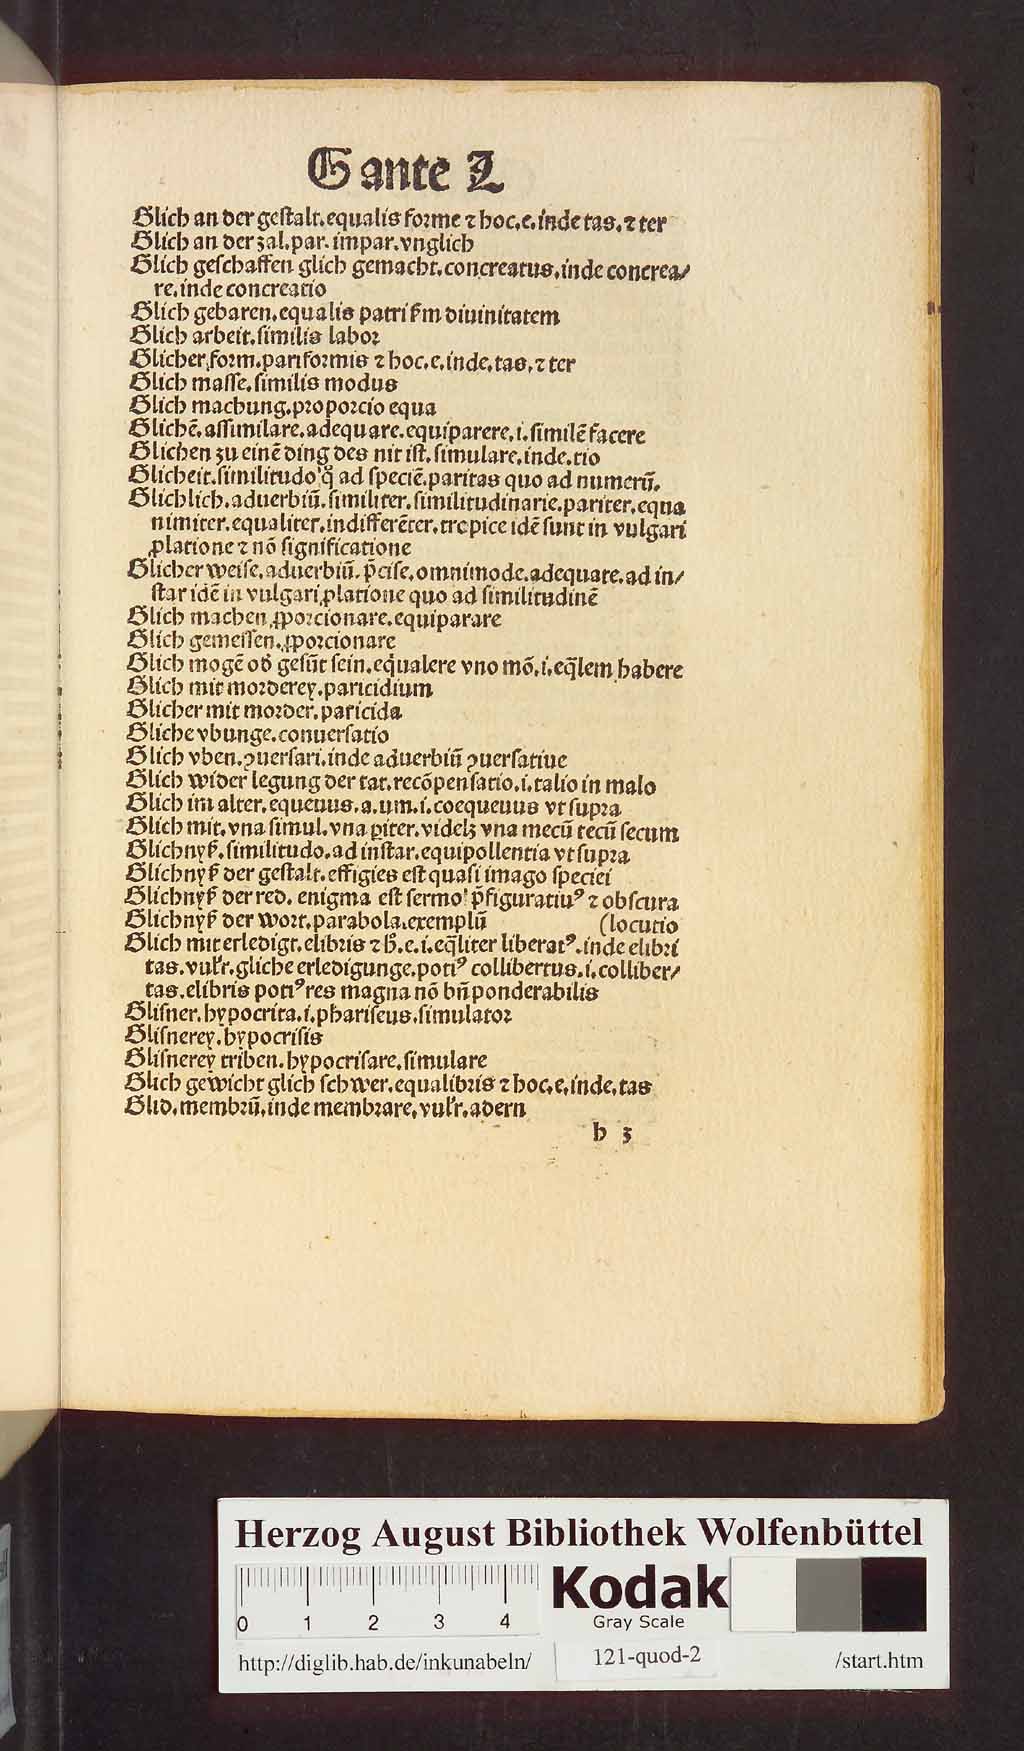 G ante L
Glich an der gestalt.equalis forme ⁊ hoc.e.inde tas.⁊ ter
Glich an der zal.par.impar.vnglich
Glich geschaffen glich gemacht.concreatus.inde concrea/
re.inde concreatio
Glich gebaren.equalis patri ẜm diuinitatem
Glich arbeit.similis labor
Glicher form.pariformis ⁊ hoc.e.inde.tas.⁊ ter
Glich masse.similis modus
Glich machung.proporcio equa
Glichē.assimilare.adequare.equiparere.i.similē facere
Glichen zu einē ding des nit ist.simulare.inde.tio
Glicheit.similitudo ad speciē.paritas quo ad numerū.
Glichlich.aduerbiū.similiter.similitudinarie.pariter.equa
nimiter.equaliter.indifferēter.tropice idē sunt in vulgari
ꝓlatione ⁊ nō significatione
Glicher weise.aduerbiū.p̄cise.omnimode.adequate.ad in/
star idē in vulgari ꝓlatione quo ad similitudinē
Glich machen.ꝓporcionare.equiparare
Glich gemessen.ꝓporcionare
Glich mogē od̕ gesūt sein.equalere vno mō.i.eq̄lem habere
Glich mit morderey.paricidium
Glicher mit morder.paricida
Gliche vbunge.conuersatio
Glich vben.ꝯuersari.inde aduerbiū ꝯuersatiue
Glich wider legung der tat.recōpensatio.i.talio in malo
Glich im alter.equeuus.a.um.i.coequeuus vt supra
Glich mit.vna simul.vna ꝑiter.videlꝫ vna mecū tecū secum
Glichnyß.similitudo.ad instar.equipollentia vt supra
Glichnyß der gestalt.effigies est quasi imago speciei
Glichnyß der red.enigma est sermo p̄figuratiuꝰ ⁊ obscura
Glichnyß der wort.parabola.exemplū (locutio
Glich mit erledigt.elibris ⁊ h̄.e.i.eq̄liter liberatꝰ.inde elibri
tas.vulr̕.gliche erledigunge.potiꝰ collibertus.i.colliber/
tas.elibris potiꝰ res magna nō bn̄ ponderabilis
Glisner.hypocrita.i.phariseus.simulator
Glisnerey.hypocrisis
Glisnerey triben.hypocrisare.simulare
Glich gewicht glich schwer.equalibris ⁊ hoc.e.inde.tas
Glid.membrū.inde membrare.vulr̕.adern
h 3
Herzog August Bibliothek Wolfenbüttel
0 1 2 3 4
Kodak
Gray Scale
http://diglib.hab.de/inkunabeln/ 121-quod-2 /start.htm